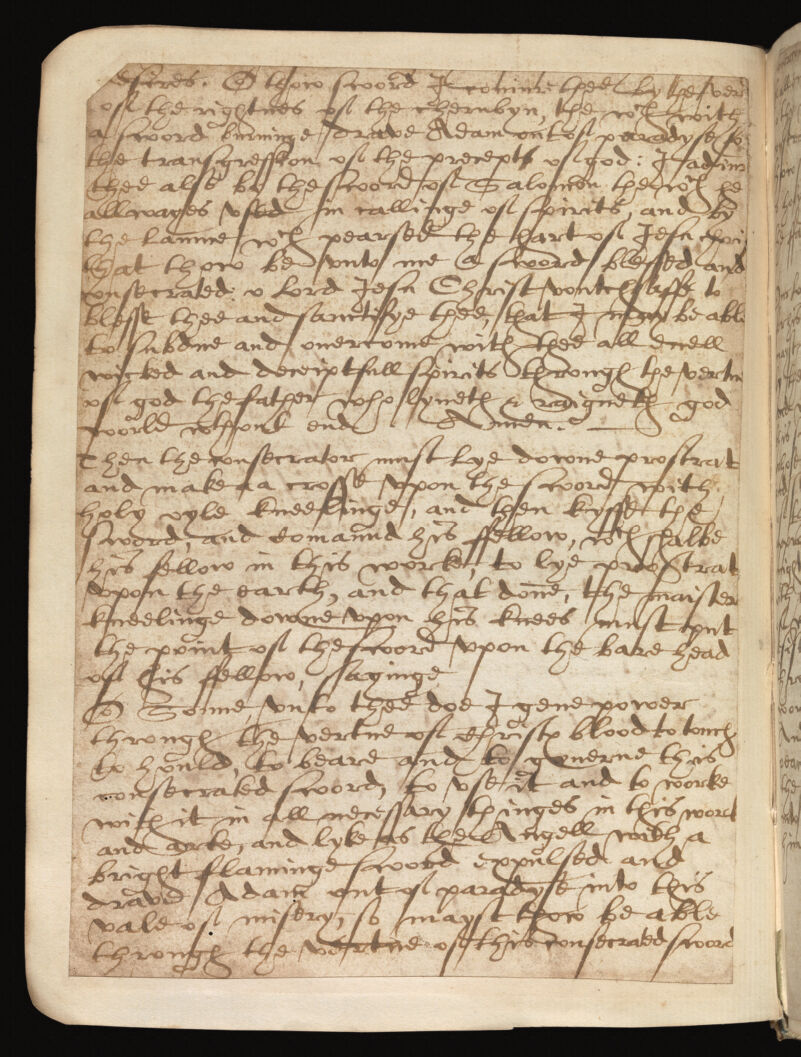 desires. O thow sword I coniure thee by the ver
of the rightnes of the cherubyn, the wch with
a sword burninge drave Adam out of paradyse fo
the transgression of the precepts of god: I adiur
thee also by the sword of Salomon the wch he
allwayes vsed in callinge of spirits, and by
the launce wch pearsed the hart of Jesu Chri
that thow be vnto me a sword blessed and
consecrated. o Lord Jesu Christ voutchsaffe to
blesse thee and sanctifye thee, that I may be able
to subdue and overcome with thee all evell
wicked and deceiptfull spirits through the vertue
of god the father who lyveth & raigneth god
world wthout end Amen.
Then the consecrator must lye downe prostrat
and make a crosse vpon the sword with
holy oyle kneelinge, and then kysse the
sword, and comaund his fellow, wch shalbe
his fellow in this worke, to lye prostrat
vpon the earth, and that done, the maister
kneelinge downe vpon his knees must put
the point of the sword vpon the bare head
of his fellow, sayinge
O Sonne, vnto thee doe I geve power
through the vertue of Christs blood to touch
to hould, to beare and to governe this
consecrated sword, to vse it and to worke
with it in all necessary thinges in this work
and arte, and lyke as the Angell with a
bright flaminge sword expulsed and
drave Adam out of paradyse into this
vale of misery, so mayst thow be able
through the vertue of this consecrated sword